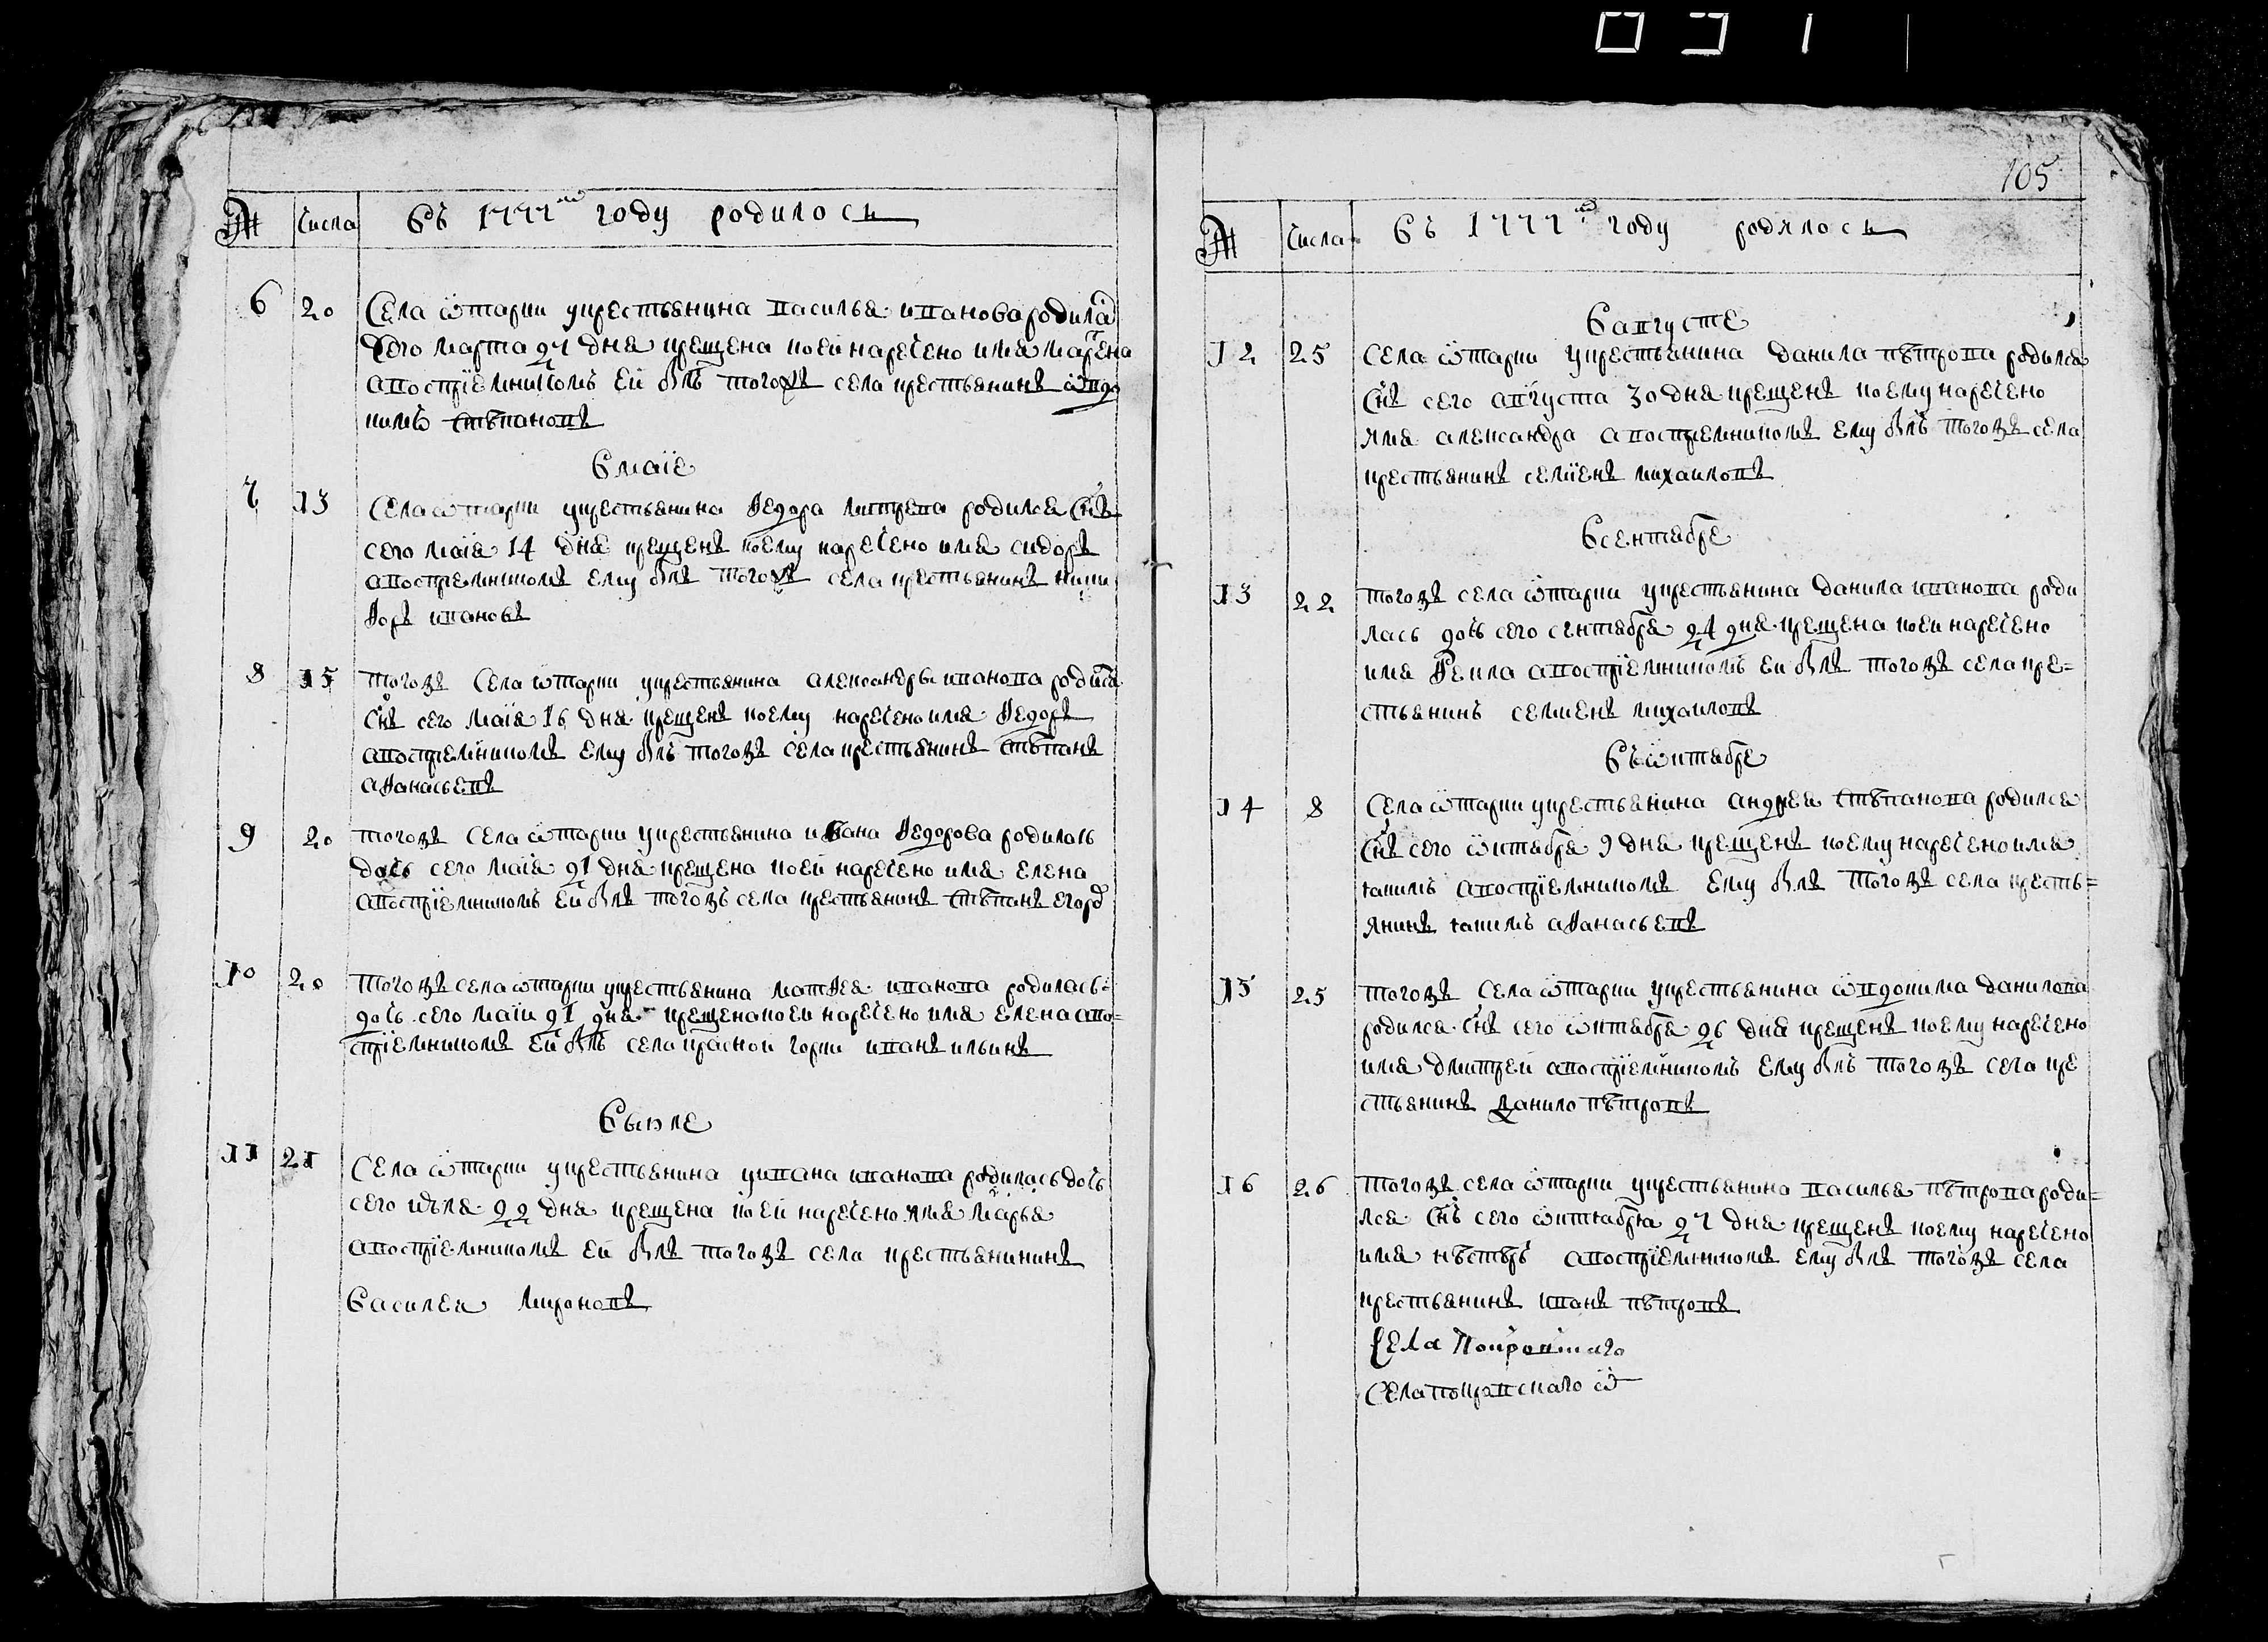 № Числа Въ 1777м году родилось
6 20 Села ѿтарки укрестьянина василья иванова родила
Сего марта 27 дня крещена иоей наречено имя марена
авосприемникомъ ей былъ тогожъ села крестьянинъ
кимъ стѣпановъ
В маїе
7 13 Села ѿтарки укрестьянина ѳедора митрева родился снъ
сего маїя 14 дня крещенъ иоему наречено имя сидоръ
авосприемникомъ ему былъ тогожъ села крестьянинъ ники
ѳоръ ивановъ
8 15 тогожъ Села ѿтарки укрестьянина александры иванова родился
снъ сего маїя 16 дня крещенъ иоему наречено имя ѳедоръ
авосприемникомъ ему былъ тогожъ села крестьянинъ стѣпанъ
аѳанасьевъ
9 20 тогожъ Села ѿтарки укрестьянина ивана ѳедорова родилась
дочь сего маїя 21 дня крещена иоей наречено имя елена
авосприїемникомъ ей былъ тогожъ села крестьянинъ стѣпанъ егоро
10 20 тогожъ села ѿтарки укрестьянина матѳея иванова родилась
дочь сего маїи 21 дня крещена иоей наречено имя елена аво=
сприїемникомъ ей былъ села красной горки иванъ ильинъ
Выюле
11 21 Села ѿтарки укрестьянина уивана иванова родилась дочь
сего июля 22 дня крещена иоей наречено имя марья
авосприїемникомъ ей былъ тогожъ села крестьянининъ
Василеи мироновъ
105
№ Числа Въ 1777м году родялось
Вавгусте
12 25 Села ѿтарки укрестьянина данила пѣтрова родился
снъ сего августа 30 дня крещенъ иоему наречено
имя александра авосприемникомъ ему былъ тогожъ села
крестьянинъ семїенъ михаиловъ
Всентябре
13 22 тогожъ села ѿтарки укрестьянина данила иванова роди
лась дочь сего сентября 24 дня крещена иоей наречено
имя ѳекла авосприїемникомъ ей былъ тогожъ села кре=
стьянинъ семменъ михаиловъ
Въѿктябре
14 8 Села ѿтарки укрестьянина андрея стѣпанова родился
снъ сего ѿктября 9 дня крещенъ иоему наречено имя
ꙗкимъ авосприїемникомъ ему былъ тогожъ села кресть=
янинъ ꙗкимъ аѳанасьевъ
15 25 тогожъ Села ѿтарки укрестьянина ѿвдокима данилова
родился снъ сего ѿктября 26 дня крещенъ иоему наречено
имя дмитреи авосприїемникомъ ему былъ тогожъ села кре
стьянинъ данило пѣтровъ
16 26 тогожъ села ѿтарки укрестьянина василья пѣтрова роди=
лся снъ сего ѿктꙗбрꙗ 27 дня крещенъ иоему наречено
имя нѣстѣръ авосприїемникомъ ему былъ тогожъ села
крестьянинъ иванъ пѣтровъ
Села Покровскаго
Села покравскаго ѿ